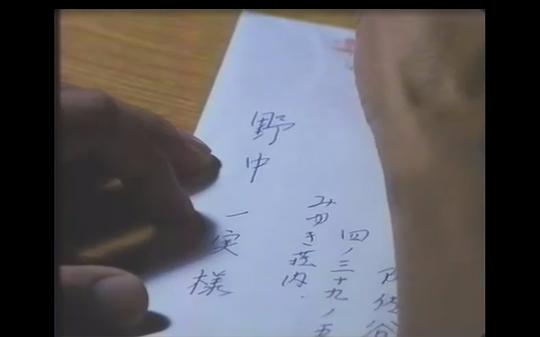 阿佐谷
四ノ三十九ノ五
みゆき荘内
野中
一定 様